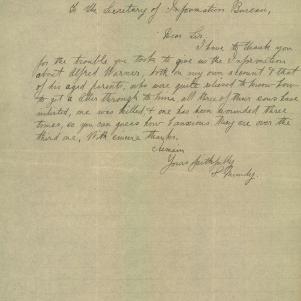 To the Secretary of Information Bureau,
Dear Sir,
I have to thank you
for the trouble you took to give us the Information
about Alfred Warner, both on my own account & that
of his aged parents, who were quite relieved to know how
to get a letter through to him, all three of their sons have
enlisted, one was killed & one has been wounded three
times, so you can guess how anxious they are over the
third one, With sincere thanks.
I remain
Yours faithfully